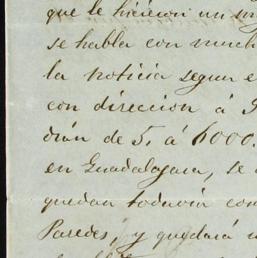 que le hicieron un
se habla con much
la noticia segun e
con direccion á S
drán de 5. á 6000.
en Guadalajara, se
quedan todavia con
Paredes, y quedará